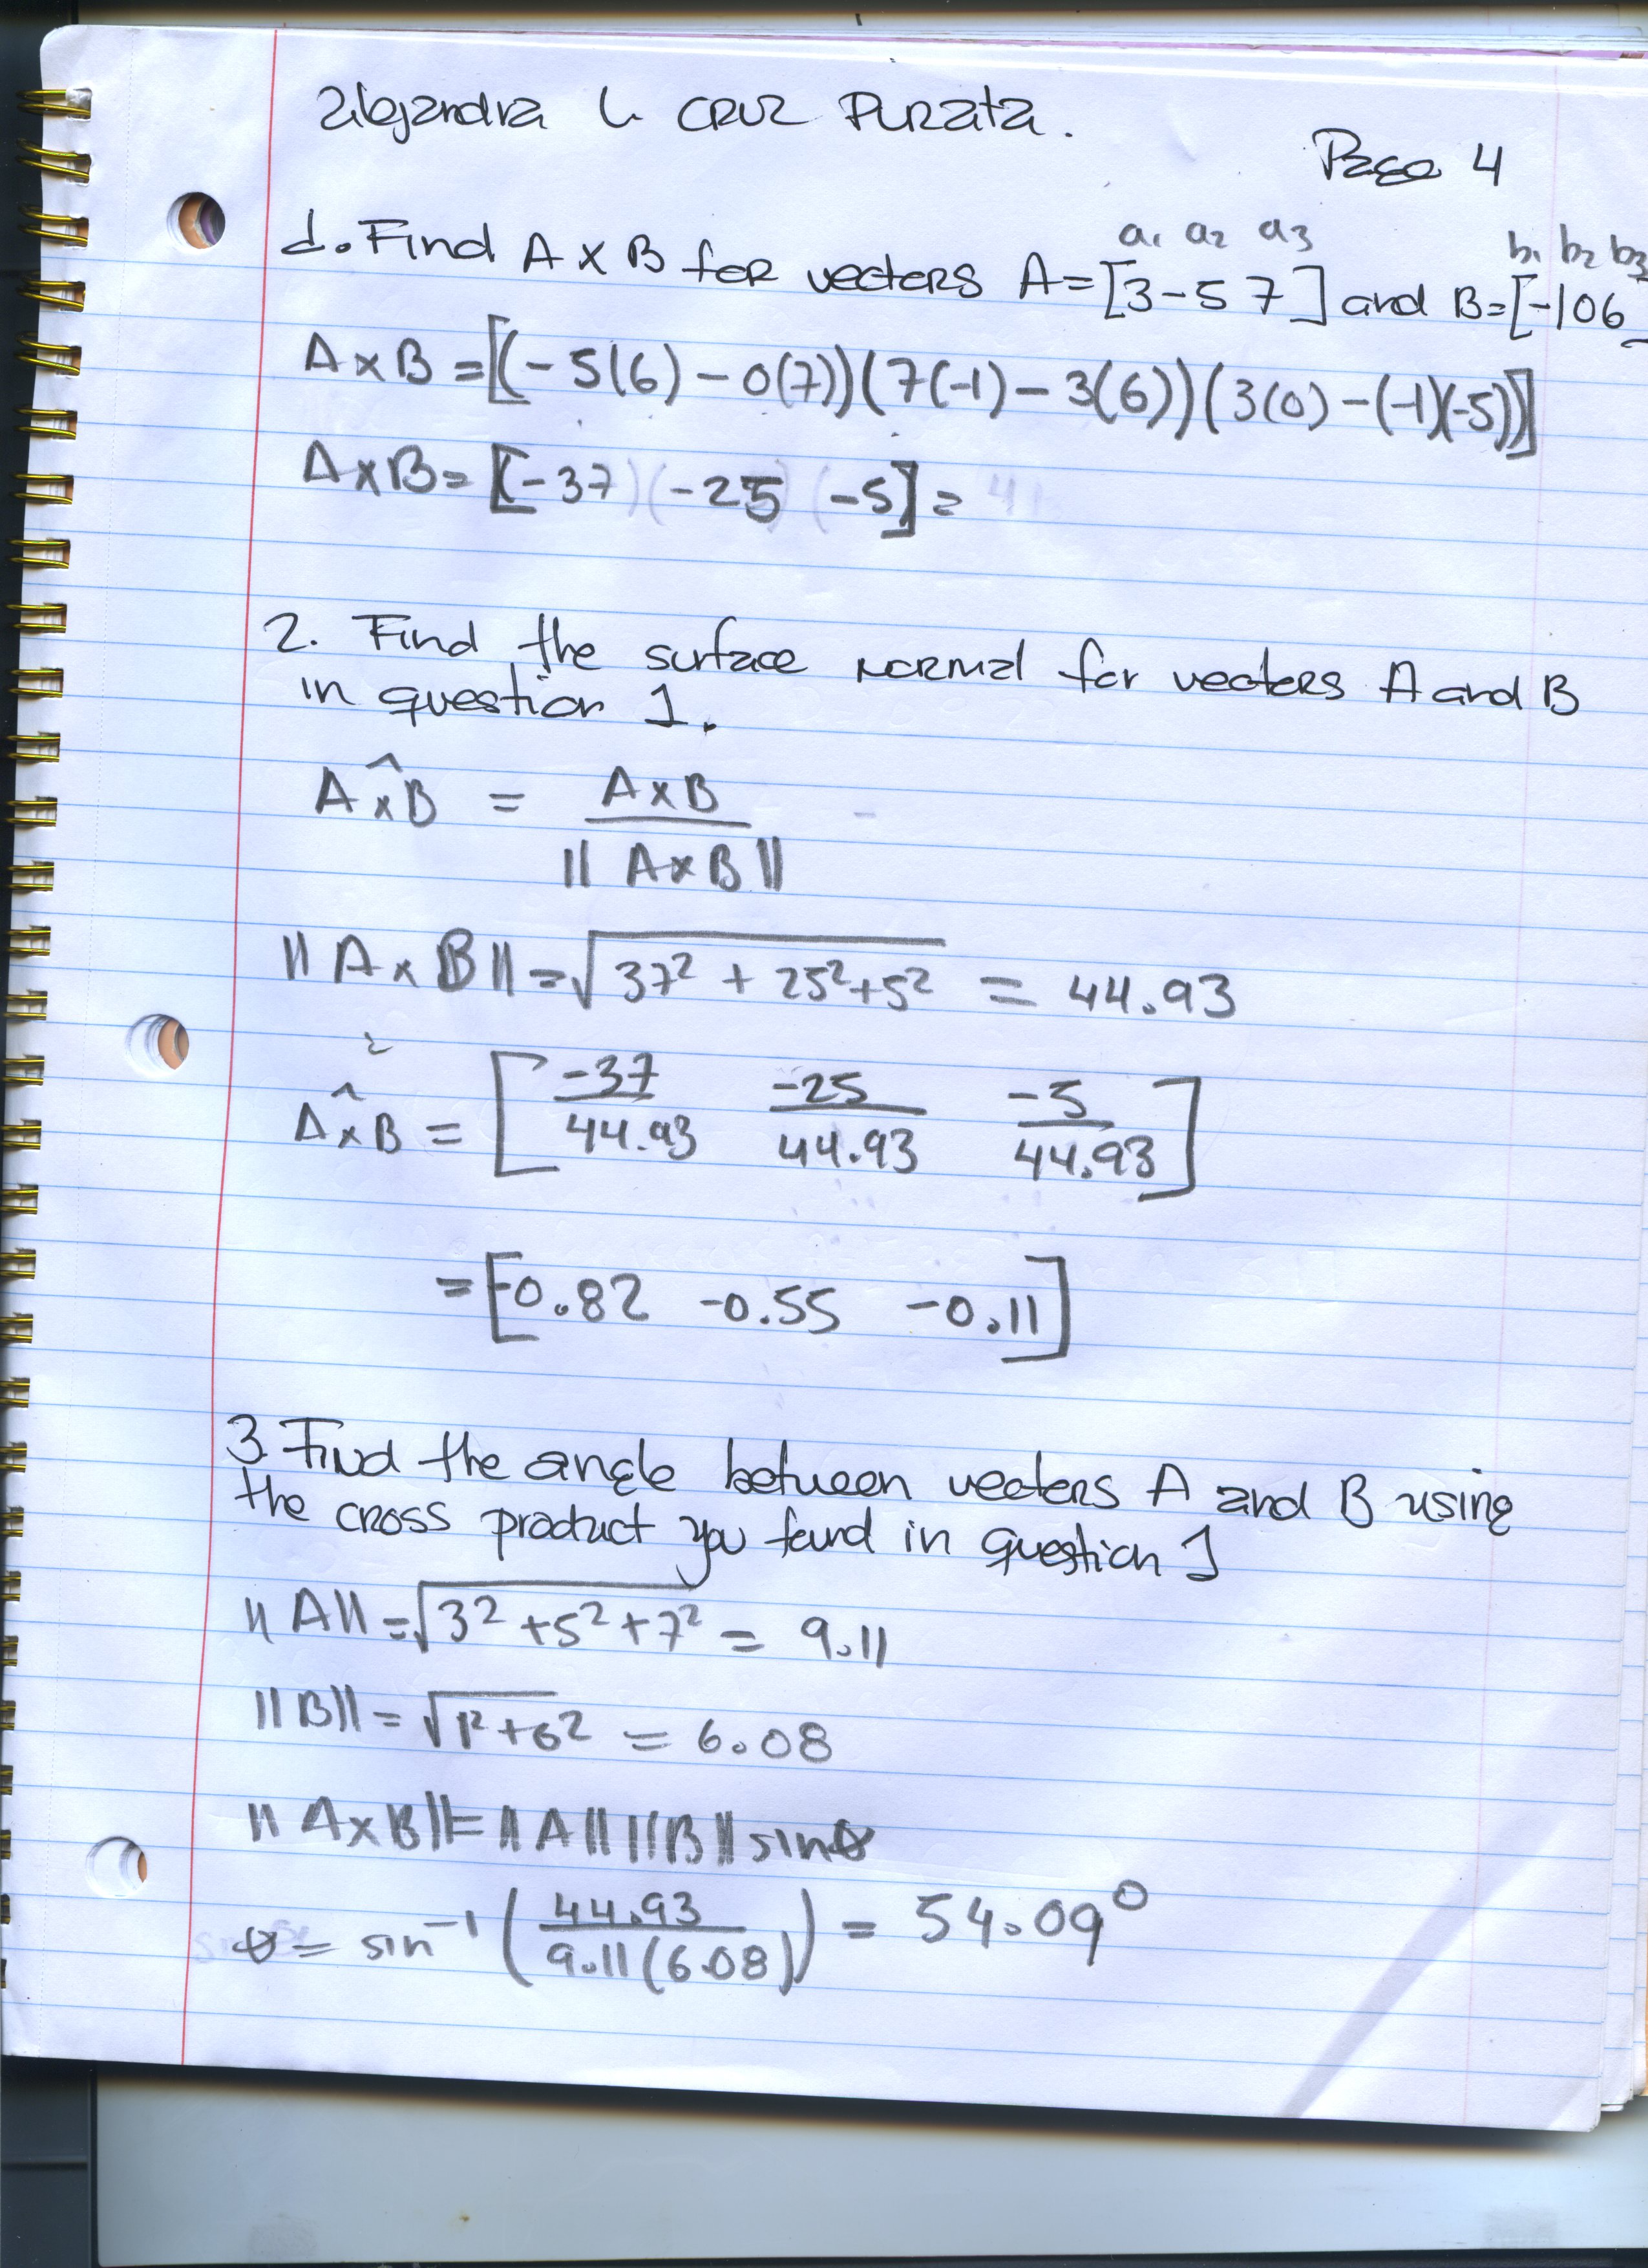 Alejandra L. CRUZ PURATA.
Page 4
a1 a2 a3 b1 b2 b3
d. Find A x B for vectors A = [3 -5 7] and B = [-1 0 6
A x B = [(-5(6) - 0(7)) (7(-1) - 3(6)) (3(0) - (-1)(-5))]
A x B = [(-37) (-25) (-5] =
2. Find the surface normal for vectors A and B
in question 1.
A x̂ B = A x B / || A x B ||
|| A x B || = √37² + 25² + 5² = 44.93
A x̂ B = [ -37/44.93 -25/44.93 -5/44.93 ]
= [-0.82 -0.55 -0.11]
3 Find the angle between vectors A and B using
the cross product you found in question 1
|| A || = √3² + 5² + 7² = 9.11
|| B || = √1² + 6² = 6.08
|| A x B || = || A || || B || sin θ
θ = sin⁻¹ ( 44.93 / 9.11(6.08) ) = 54.09°